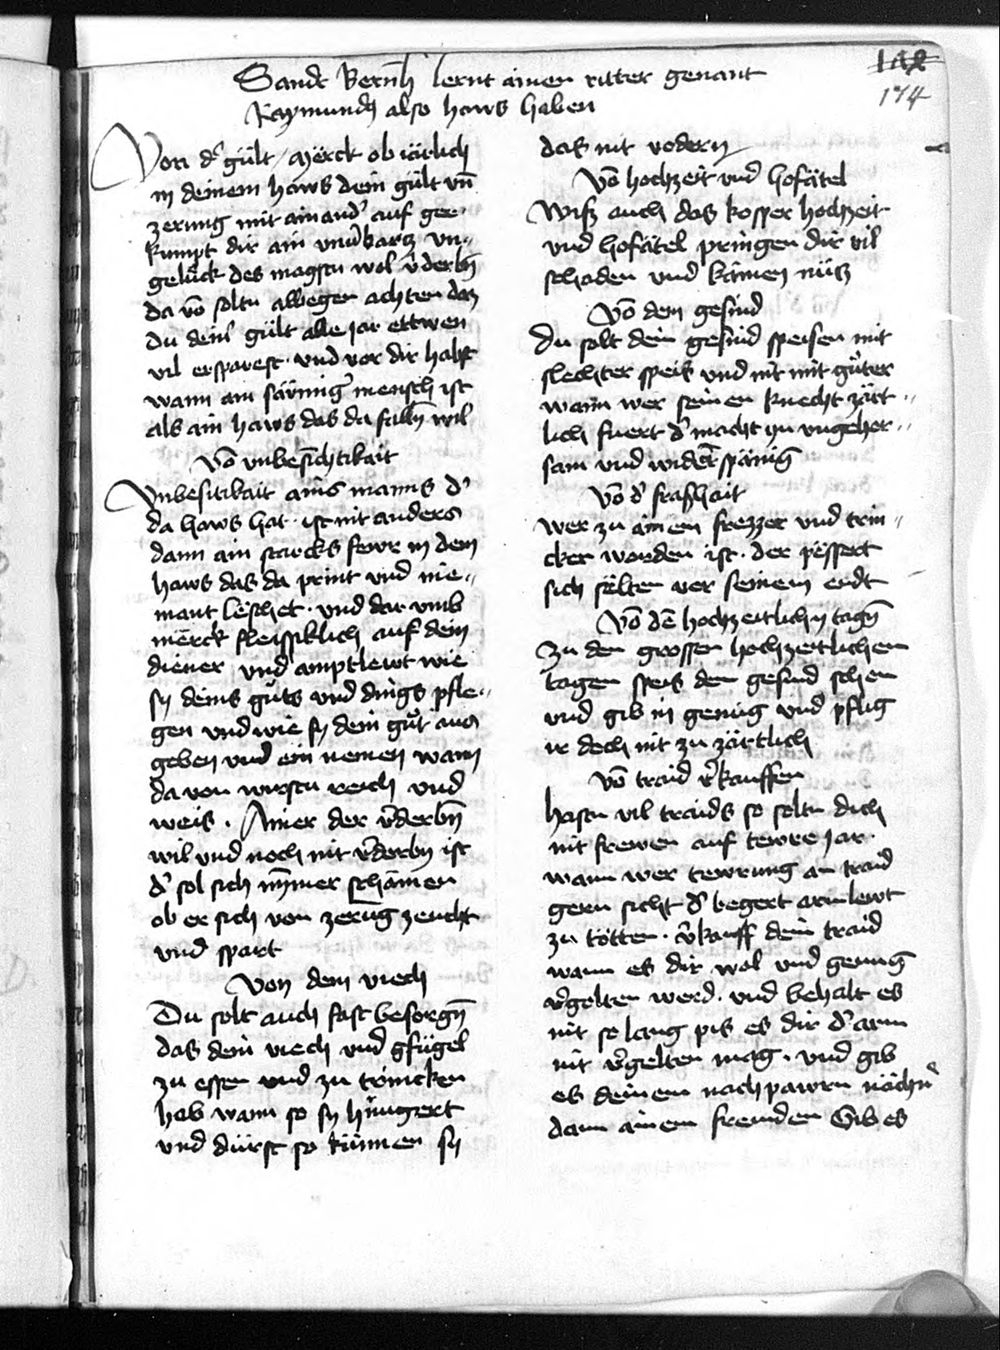 Sandt Bernh lernt ainen ritter genant
Raymundū also haws haben
174
Von d' gült / Mërck ob iärlich
in deinem haws dein gült vn̄
zerung mit ainand' auf gee
kumpt dir ain
gelück des magstu wol v̄derbn̄
da vō soltu allwegen achten daz
du deinr gült alle jar ettwen
vil ersparest · vnd vor dir habst
wann ain mensch ist
als ain haws das da falln̄ wil
Vō vnbesichtikait
Vnbesitikait ains manns d'
da haws hat · ist nit anders
dann ain starcks fewr in dem
haws das da print vnd nie„
mant leschet · vnd dar vmb
mërck fleissiklich auf dein
diener vnd amptlewt wie
sy deins guts vnd dings pfle„
gen vnd wie sy dein gut aus
geben vnd ein nemen wann
da von wirstu reich vnd
weis . Ainer der v̄derbn̄
wil vnd noch nit v̄derbn ist
d' sol sich nymmer schämen
ob er sich von zerūg zeucht
vnd spart
Von dem viech
Du solt auch fast besorgn̄
das dein viech vnd gflügel
zu essen vnd zu trincken
hab wann so sy hungert
vnd dürst so künnen sy
das nit vodern
Vō hochzeit vnd hofätel
Wisz auch das kosper hochzeit
vnd hofätel pringen dir vil
schaden vnd kainen nücz
Vō dem gesind
Du solt dein gesind speisen mit
slechter speis vnd nit mit guter
wann wer seinen knecht zärt„
lich fuert d' macht in vngehor„
sam vnd widerspänig
Vō d' fraßhait
wer zu ainem frezzer vnd trin„
cker worden ist · der pessert
sich selten vor seinem endt
Vō dē hochzeitlichn tagn̄
Zu den grossen hochzeitlichen
tagen speis dein gesind schon
vnd gib in genug vnd pflig
ir doch nit zu zärtlich
Vō traid v'kauffen
Hastu vil traids so soltu dich
nit frewen auf tewre jar ·
wann wer tewrung an traid
gern sicht d' begert arm lewt
zu tötten · v'kauff dein traid
wann es dir wol vnd genug
v'golten werd · vnd behalt es
nit so lang pis es dir d' arm
nit v'gelten mag · vnd gib
es deinem nachpawrn nächn̄'
dann ainem fremden Gib es